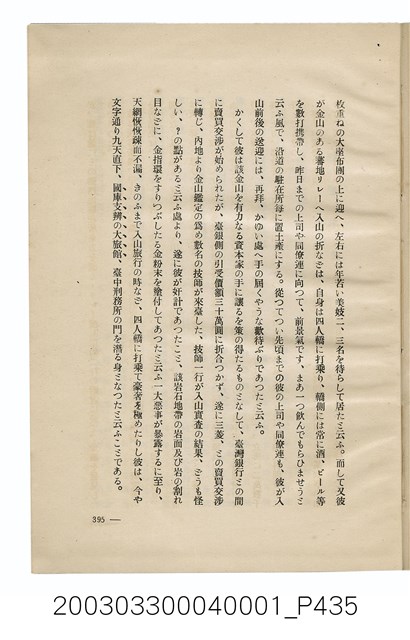 枚重ねの大座布團の上に迎へ、左右には年若い美妓二、三名を侍らして居たと云ふ。而して又彼
が金山のある蕃地リレーへ入山の折などは、自身は四人轎に打乘り、轎側には常に酒、ビール等
を數打携帶し、昨日までの上司や同僚連に向つて、前景氣です、まあ一つ飲んでもらひませうと
云ふ風で、沿道の駐在所每に置土產にする。從つてつい先頃までの彼の上司や同僚連も、彼が入
山前後の送迎には、再拜、かゆい處へ手の屆くやうな歡待ぶりであつたと云ふ。
かくして彼は該金山を有力なる資本家の手に讓るを策の得たるものとなして、臺灣銀行との間
に賣買交涉が始められたが、臺銀側の引受價額三十萬圓に折合つかず、遂に三菱、との賣買交涉
に轉じ、內地より金山鑑定の爲め數名の技師が來臺した、技師一行が入山實査の結果、どうも怪
しい、？の點があると云ふ處より、遂に彼が奸計であつたこと、該岩石地帶の岩面及び岩の割れ
目などに、金指環をすりつぶしたる金粉末を塗付してあつたと云ふ一大惡事が暴露するに至り、
天網恢恢疎而不漏、きのふまで入山旅行の時など、四人轎に打乘て豪奢を極めたりし彼は、今や
文字通り九天直下、國庫支辨の大旅館、臺中刑務所の門を潛る身となつたと云ふことである。
395 —
200303300040001_P435